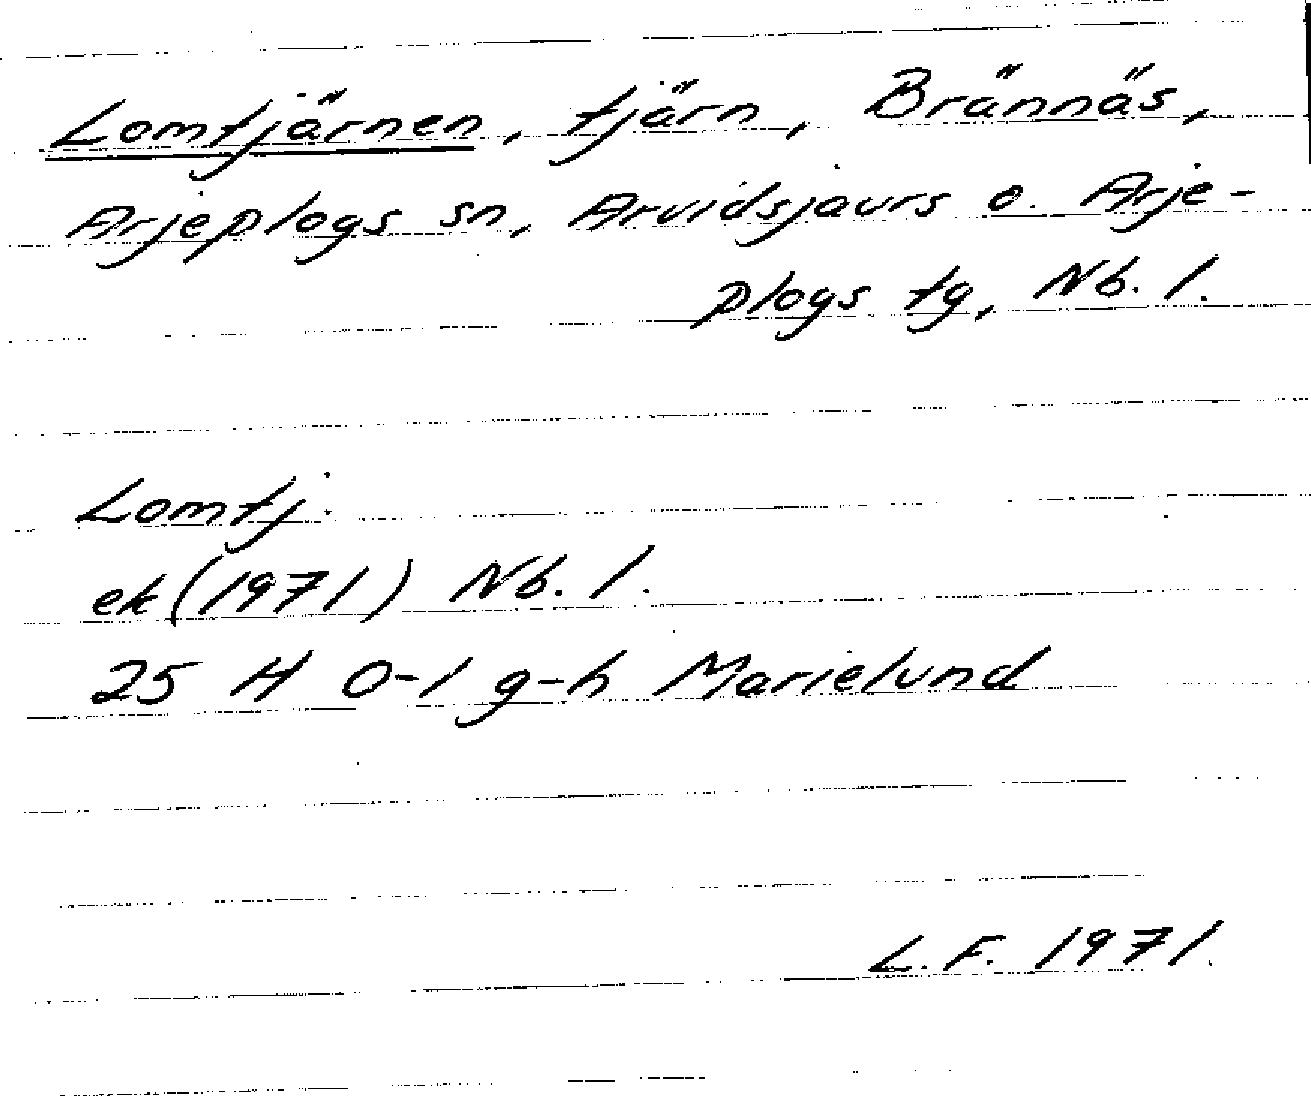 Lomtjärnen, tjärn, Brännäs,
Arjeplogs sn, Arvidsjaurs o. Arje-
plogs tg, Nb. l.
Lomtj.
ek (1971) Nb. l.
25 H 0-1 g-h Marielund
L. F. 1971.